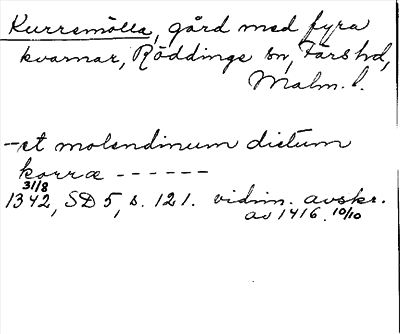 Kurremölla, gård med fyra
kvarnar, Röddinge sn, Färs hd,
Malm. l.
—et molendinum dictum
korræ ------
31/8
1342, SD 5, s. 121. vidim. avskr.
av 1416 10/10